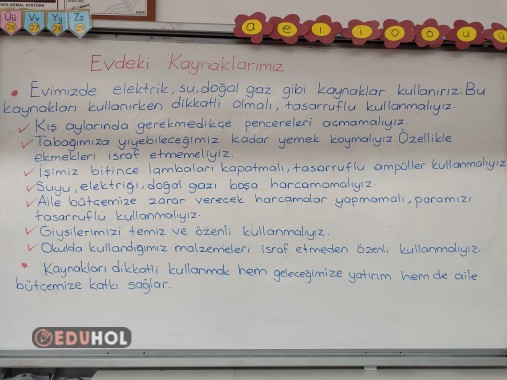 MUSTAFA KEMAL ATATÜRK
Üü Vv Yy Zz
26 27 28 29
a e ı i o ö u ü
Evdeki Kaynaklarımız
• Evimizde elektrik, su, doğal gaz gibi kaynaklar kullanırız. Bu
kaynakları kullanırken dikkatli olmalı, tasarruflu kullanmalıyız.
✓ Kış aylarında gerekmedikçe pencereleri açmamalıyız.
✓ Tabağımıza yiyebileceğimiz kadar yemek koymalıyız. Özellikle
ekmekleri israf etmemeliyiz.
✓ İşimiz bitince lambaları kapatmalı, tasarruflu ampüller kullanmalıyız
✓ Suyu, elektriği, doğal gazı boşa harcamamalıyız.
✓ Aile bütçemize zarar verecek harcamalar yapmamalı, paramızı
tasarruflu kullanmalıyız.
✓ Giysilerimizi temiz ve özenli kullanmalıyız.
✓ Okulda kullandığımız malzemeleri israf etmeden özenli kullanmalıyız.
• Kaynakları dikkatli kullanmak hem geleceğimize yatırım hem de aile
bütçemize katkı sağlar.
EDUHOL